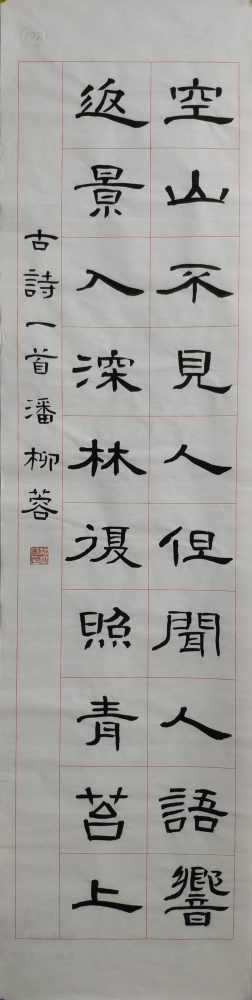 空山不見人但聞人語響
返景入深林復照青苔上
古詩一首潘柳蓉
102